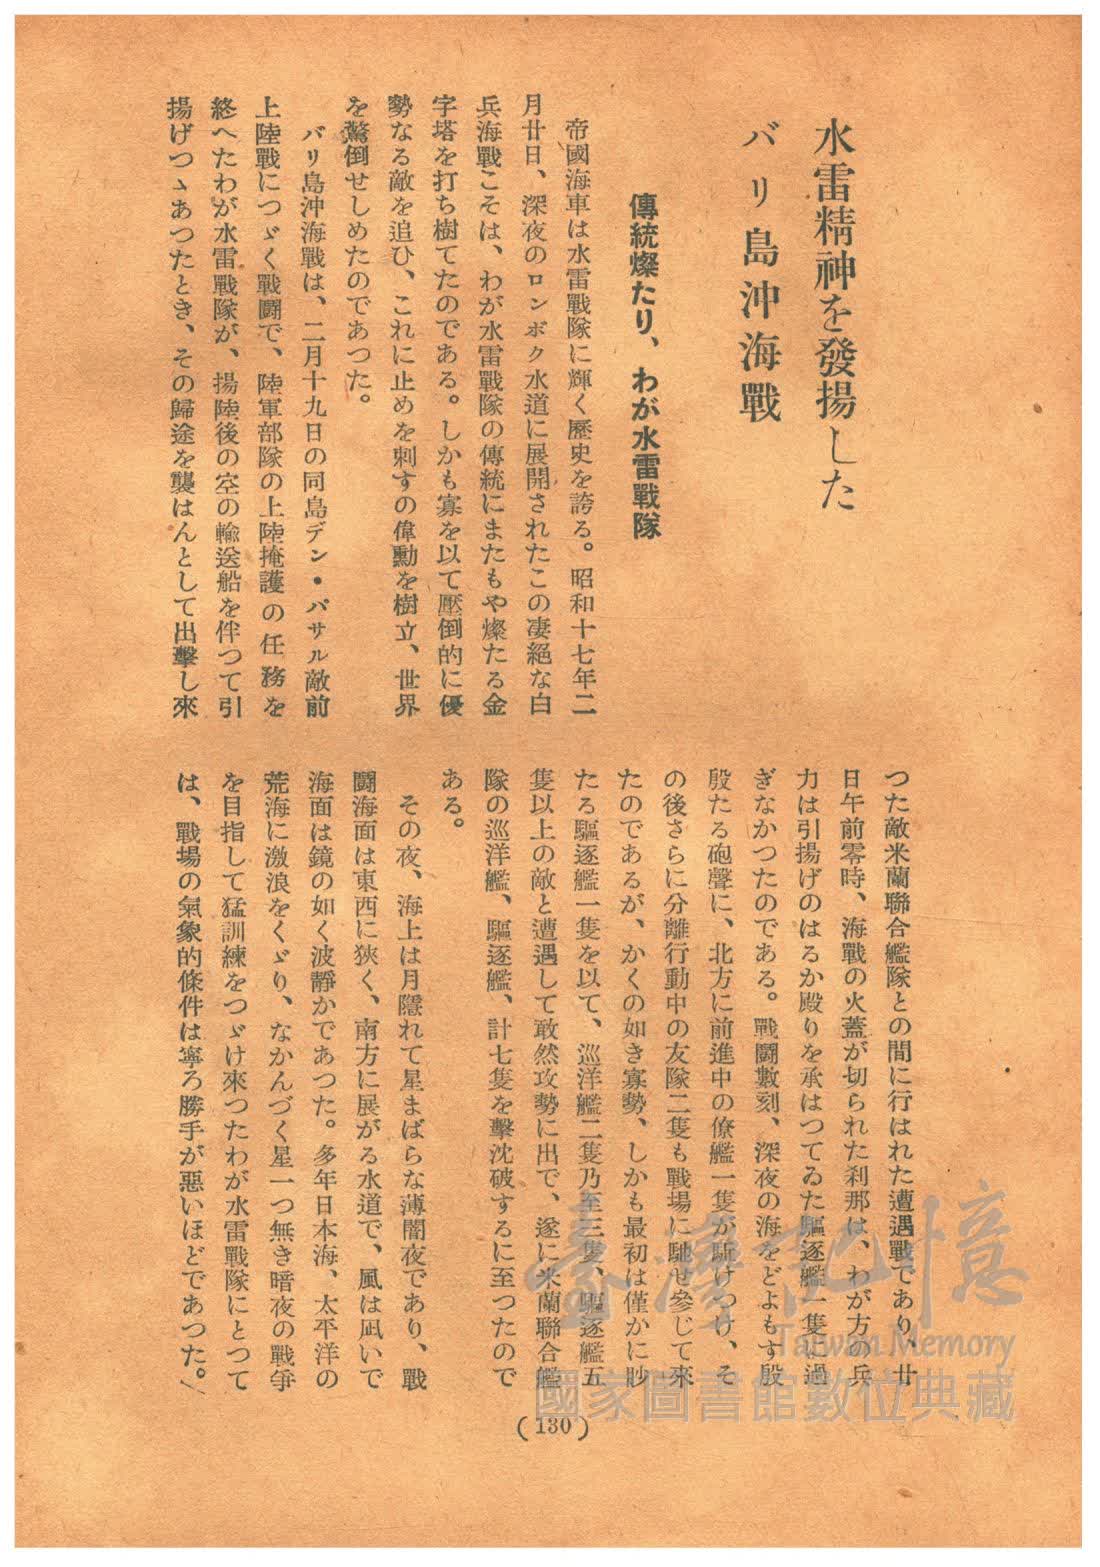 水雷精神を發揚した
バリ島沖海戰
傳統燦たり、わが水雷戰隊
帝國海車は水雷戰隊に輝く歷史を誇る。昭和十七年二
月廿日、深夜のロンボク水道に展開されたこの凄絕な白
兵海戰こそは、わが水雷戰隊の傳統にまたもや燦たる金
字塔を打ち樹てたのである。しかも寡を以て壓倒的に優
勢なる敵を追ひ、これに止めを刺すの偉勳を樹立、世界
を驚倒せしめたのであつた。
バリ島沖海戰は、二月十九日の同島デン・バサル敵前
上陸戰につゞく戰鬪で、陸軍部隊の上陸掩護の任務を
終へたわが水雷戰隊が、揚陸後の空の輸送船を伴つて引
揚げつゝあつたとき、その歸途を襲はんとして出擊し來
つた敵米蘭聯合艦隊との間に行はれた遭遇戰であり、廿
日午前零時、海戰の火蓋が切られた刹那は、わが方の兵
力は引揚げのはるか殿りを承はつてゐた驅逐艦一隻に過
ぎなかつたのである。戰鬪數刻、深夜の海をどよもす殷
殷たる砲聲に、北方に前進中の僚艦一隻が駈けつけ、そ
の後さらに分離行動中の友隊二隻も戰場に馳せ參じて來
たのであるが、かくの如き寡勢、しかも最初は僅かに眇
たる驅逐艦一隻を以て、巡洋艦二隻乃至三隻、驅逐艦五
隻以上の敵と遭遇して敢然攻勢に出で、遂に米蘭聯合艦
隊の巡洋艦、驅逐艦、計七隻を擊沈破するに至つたので
ある。
その夜、海上は月隱れて星まばらな薄闇夜であり、戰
鬪海面は東西に狹く、南方に展がる水道で、風は凪いで
海面は鏡の如く波靜かであつた。多年日本海、太平洋の
荒海に激浪をくゞり、なかんづく星一つ無き暗夜の戰爭
を目指して猛訓練をつゞけ來つたわが水雷戰隊にとつて
は、戰場の氣象的條件は寧ろ勝手が惡いほどであつた。
(130)
臺灣記憶
Taiwan Memory
國家圖書館數位典藏